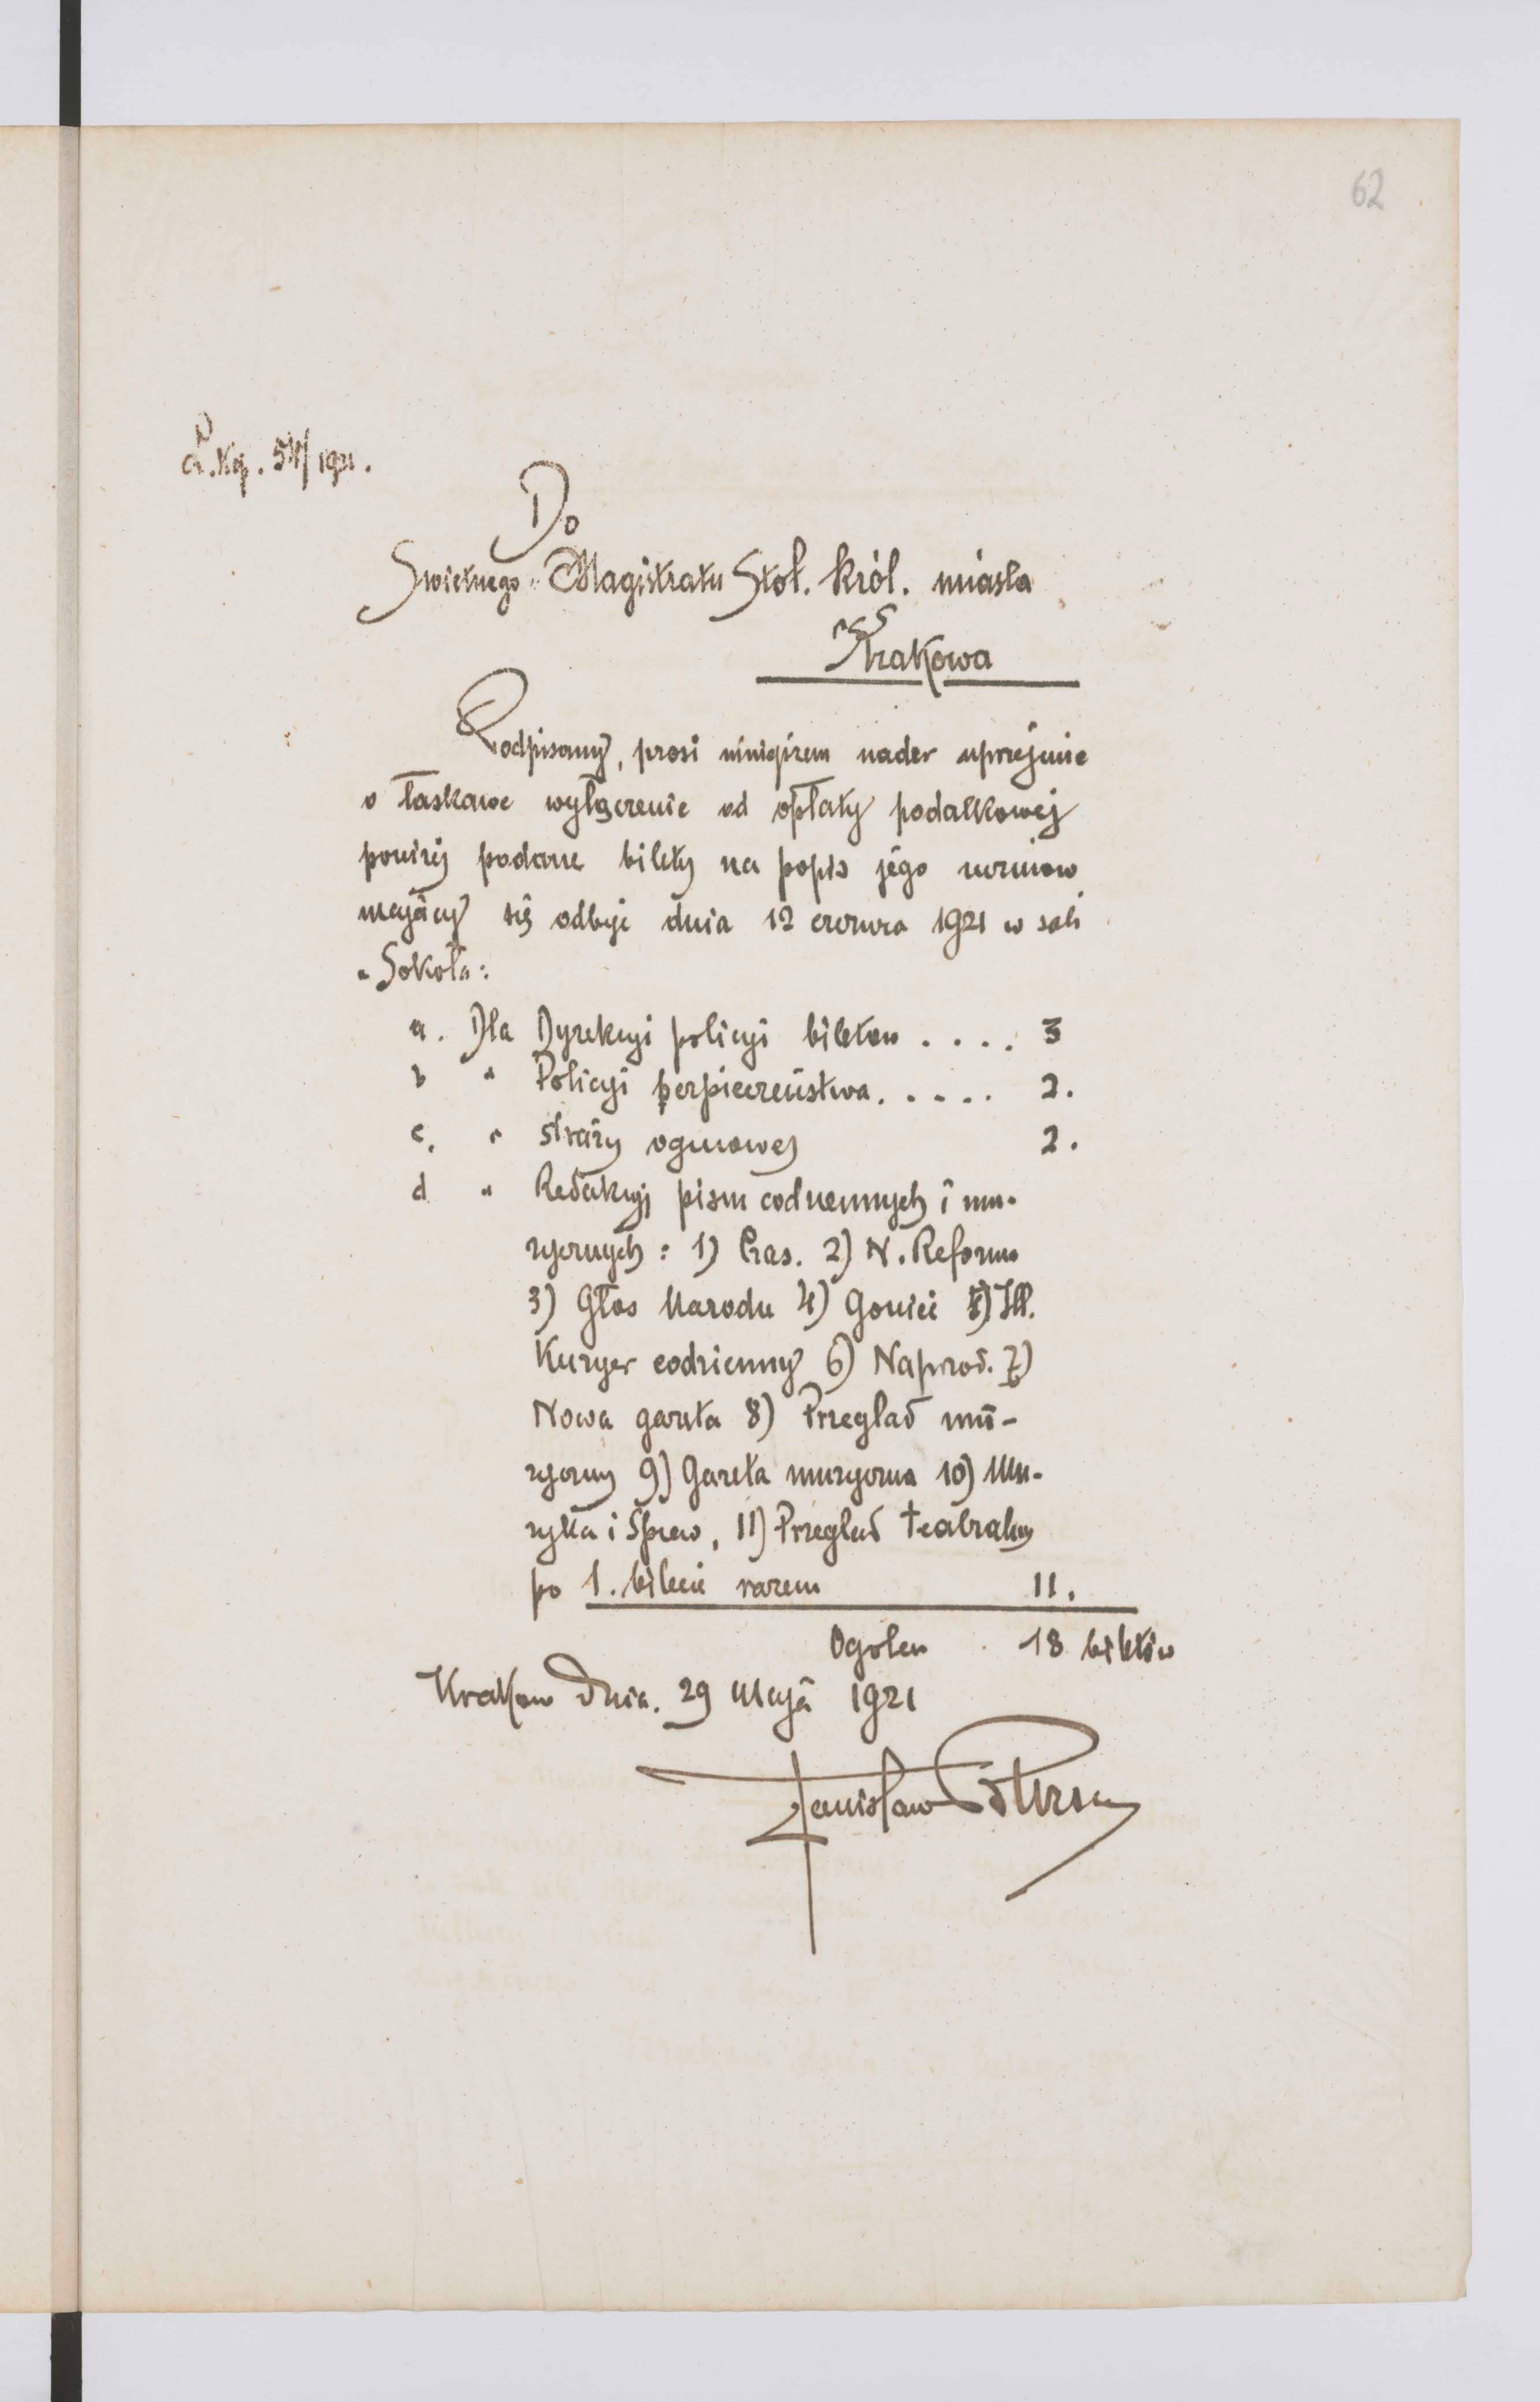 62
L. Kg. 54/1921.
Do
Swietnego Magistratu Stoł. Król. miasta
Krakowa
Podpisany, prosi niniejszem nader uprzejmie
o łaskawe wyłączenie od opłaty podatkowej
poniżej podane bilety na popis jego uczniow
mający się odbyć dnia 12 czerwca 1921 w sali
"Sokoła":
a. Dla Dyrekcyi policyi biletow . . . . 3
b " Policyi berpieczeństwa. . . . . 2.
c. " straży ogniowej 2.
d " Redakcyj pism codziennych i mu-
zycznych : 1) Czas. 2) N. Reforma
3) Głos Narodu 4) Goniec 5) Ill.
Kuryer codzienny 6) Naprzod. 7)
Nowa gazeta 8) Przeglad mu-
zyczny 9) Gazeta muzyczna 10) Mu-
zyka i Śpiew, 11) Przeglad teatralny
po 1. bilecie razem 11.
Ogolem 18 biletów
Krakow dnia. 29 Maja 1921
Stanisław